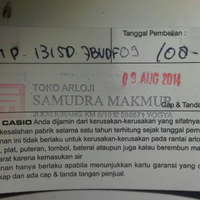 Tanggal Pembelian :
MTP-1315D-7BVDF09 100-
09 AUG 2014
TOKO ARLOJI
SAMUDRA MAKMUR
JL KALIURANG KM
YOGYA
Cap & Tanda
CASIO Anda dijamin dari kerusakan-kerusakan yang sifatnya
kesalahan pabrik selama satu tahun terhitung sejak tanggal pem
nan ini tidak berlaku untuk kerusakan-kerusakan pada rantai arloj
plat, puteran, tombol, baterai ataupun juga kalau berembun ma
arat karena kemasukan air
anan hanya berlaku apabila menunjukkan kartu garansi yang d
kap dan ada cap & tanda tangan penjual.